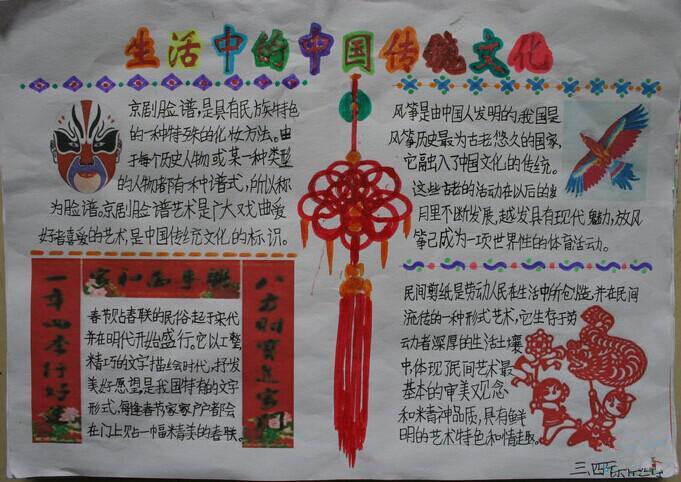 生活中的中国传统文化
京剧脸谱,是具有民族特色
的一种特殊的化妆方法。由
于每个历史人物或某一种类型
的人物都有一种谱式,所以称
为脸谱。京剧脸谱艺术是广大戏曲爱
好者喜爱的艺术,是中国传统文化的标识。
风筝是由中国人发明的,我国是
风筝历史最为古老悠久的国家,
它融入了中国文化的传统。
这些古老的活动在以后的岁
月里不断发展,越发具有现代魅力,放风
筝已成为一项世界性的体育活动。
一年四季行好运
家和万事兴
八方财宝进家门
春节贴春联的民俗起于宋代
并在明代开始盛行。它以工整
精巧的文字描绘时代,抒发
美好愿望,是我国特有的文字
形式,每逢春节家家户户都会
在门上贴一幅精美的春联。
民间剪纸是劳动人民在生活中所创造,并在民间
流传的一种形式艺术,它生存于劳
动者深厚的生活土壤
中体现了民间艺术最
基本的审美观念
和精神品质,具有鲜
明的艺术特色和情趣。
三.四